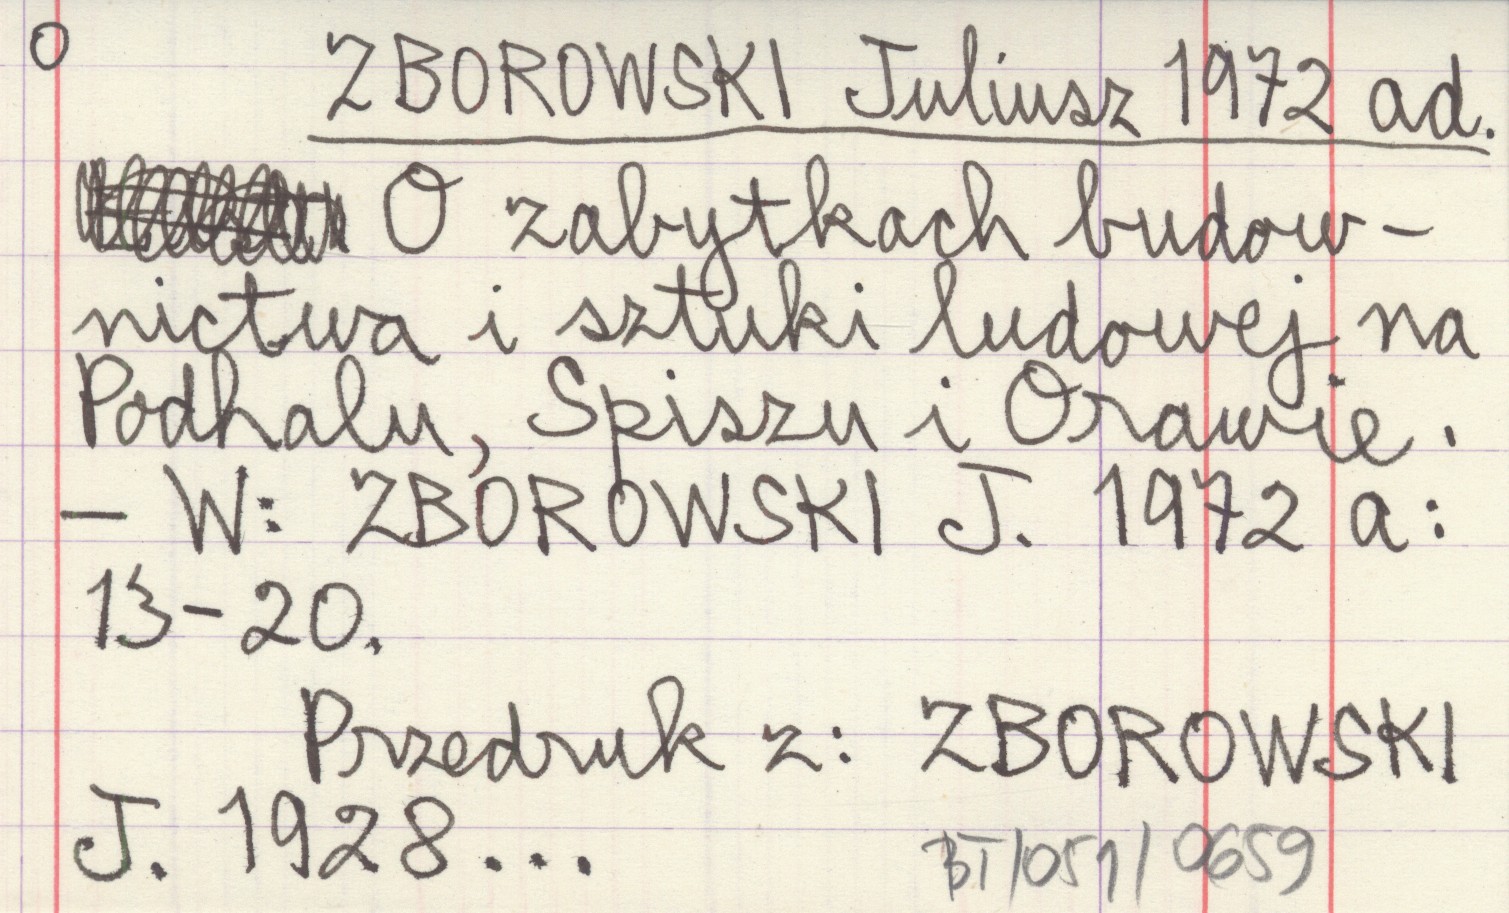 O ZBOROWSKI Juliusz 1972 ad.
O zabytkach budow-
nictwa i sztuki ludowej na
Podhalu, Spiszu i Orawie.
- W: ZBOROWSKI J. 1972 a:
13-20.
Przedruk z: ZBOROWSKI
J. 1928...
BT/051/0659